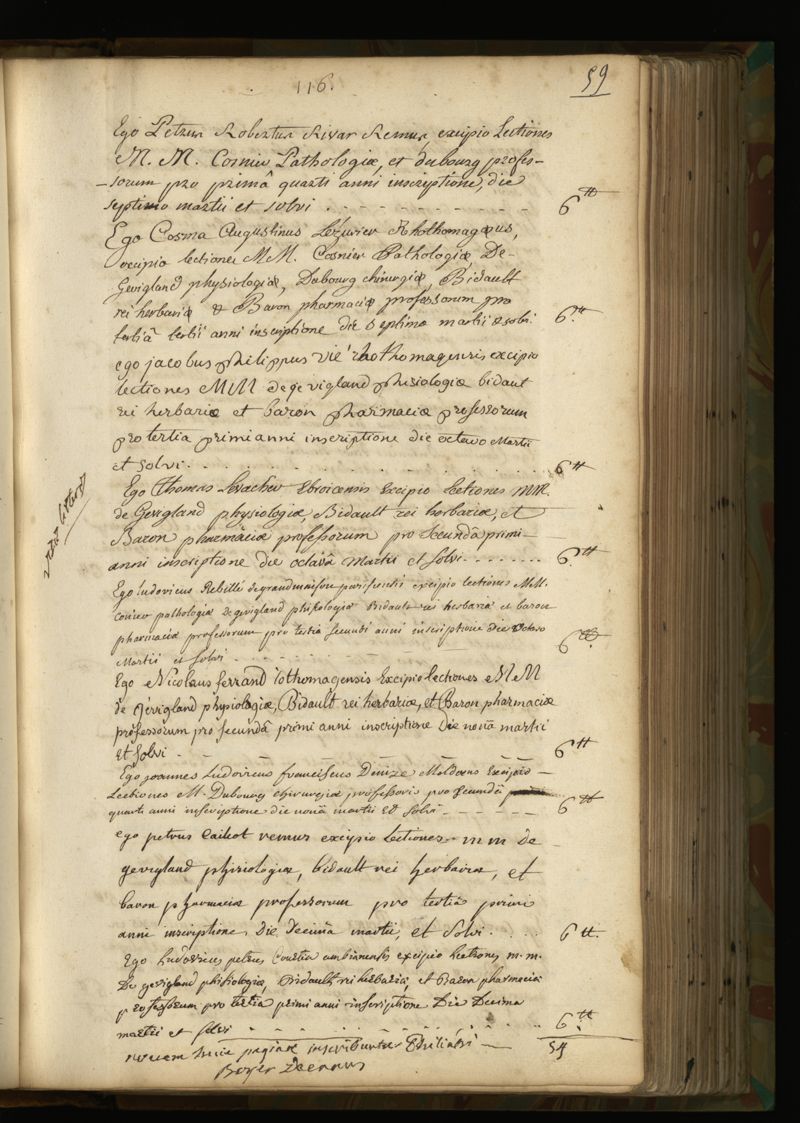 116.
59
Ego Petrus Robertus Rivar Remus, excipio Lectiones
M. M. Cosnier Pathologiæ, et dubourg profes-
-sorum pro primâ quarti anni inscriptione, die
septimo martii et solvi . - - - - - - - - - 6 ₶
Ego Cosma Augustinus Lézurier Rhothomagæus,
excipio lectiones MM. Cosnier Pathologiæ, De-
Gevigland physiologiæ, Dubourg chirurgiæ, Bidault
rei herbariæ & Baron pharmaciæ professorum pro
tertiâ tertii anni inscriptione die septima martii & solvi. 6 ₶
ego jacobus philippus vié rhothomagensis excipio
lectiones MM de gevigland phisiologiæ bidaut
rei herbariæ et baron pharmaciæ professorum
pro tertia primi anni inscriptione die octavo Martii
et solvi . . . . . . . . . . 6 ₶
Ego Thomas Ebroicensis Excipio Lectiones MM.
de Gevigland physiologiæ, Bidault rei herbariæ, et
Baron pharmaciæ professorum pro secundâ primi
anni inscriptione die octavâ Martii et solvi . . . . . . . 6 ₶
Ego ludovicus Rebillé degrandmaison parisiensis excipio lectiones M.M.
Cosnier pathologiæ degevigland phisiologiæ Bidault rei herbariæ et baron
pharmaciæ professorum pro tertia secundi anni inscriptione die octavo
Martii et solvi - - - - - - 6 ₶
Ego Nicolaus ferrand rothomagensis Excipio lectiones MM
de Gévigland physiologiæ, Bidault rei herbariæ, et Baron pharmaciæ
professorum pro secundâ primi anni inscriptione die nonâ martii
et solvi - - - - - - - 6 ₶
Ego joannes Ludovicus franciscus Denize Excipio
Lectiones M. Dubourg chirurgiæ professoris pro secundâ
quarti anni inscriptione die nonâ martii Et solvi - - - - - 6 ₶
ego petrus caillot remus excipio lectiones m m de
gevigland phisiologiæ, bidault rei herbariæ, et
baron pharmaciæ professorum pro tertiâ primi
anni inscriptione, Die Decimâ martii, et solvi . . . . 6 ₶.
Ego Ludovicus petrus ambianensis excipio lectiones m. m.
De gevigland phisiologiæ, Bidault rei herbariæ, et Baron pharmaciæ
professorum pro tertia primi anni inscriptione Die Decima
martii et solvi . . . . . . . 6 ₶
novem hac paginâ inscribuntur Philiatri — 54
Boyer Decanus